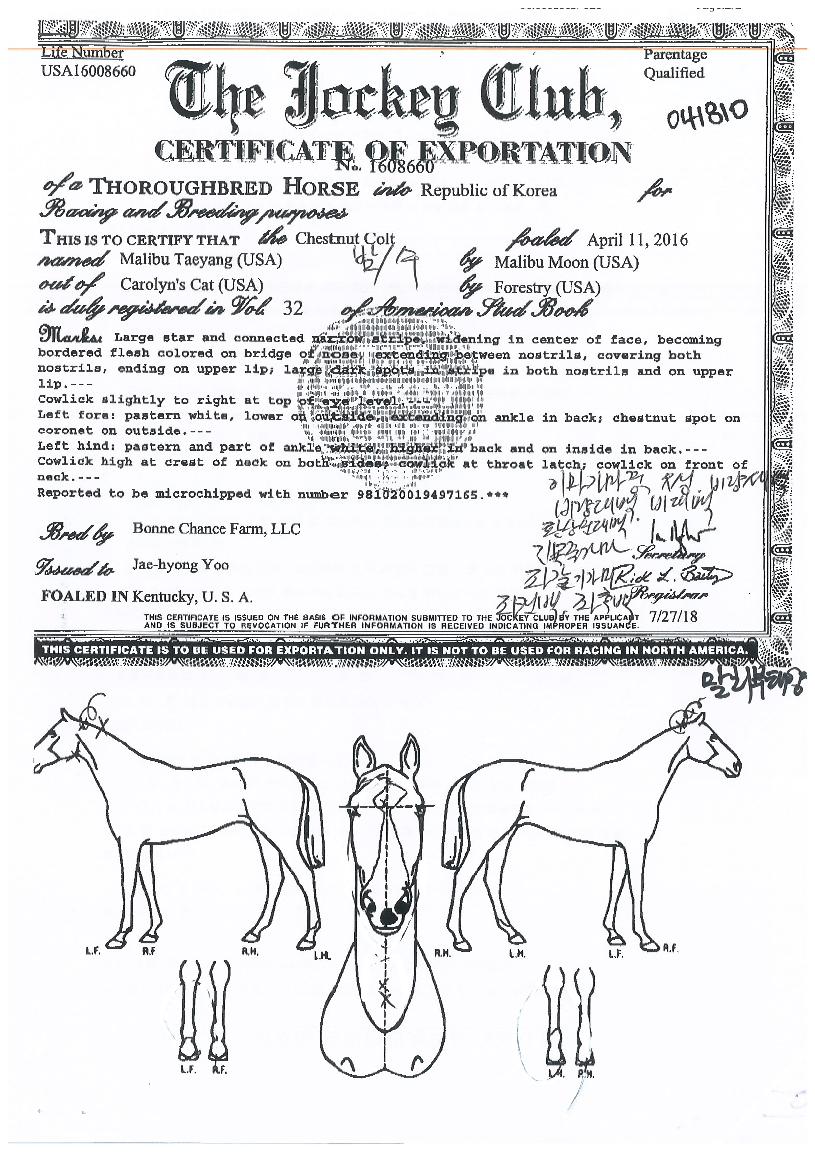 Life Number
USA16008660
Parentage
Qualified
The Jockey Club,
041810
CERTIFICATE OF EXPORTATION
No. 1608660
of a THOROUGHBRED HORSE into Republic of Korea for
Racing and Breeding purposes
THIS IS TO CERTIFY THAT the Chestnut Colt foaled April 11, 2016
named Malibu Taeyang (USA) by Malibu Moon (USA)
out of Carolyn's Cat (USA) by Forestry (USA)
is duly registered in Vol. 32 of American Stud Book
Marks: Large star and connected narrow stripe, widening in center of face, becoming
bordered flesh colored on bridge of nose, extending between nostrils, covering both
nostrils, ending on upper lip; large dark spots in stripe in both nostrils and on upper
lip.---
Cowlick slightly to right at top of eye level.---
Left fore: pastern white, lower on outside, extending on ankle in back; chestnut spot on
coronet on outside.---
Left hind: pastern and part of ankle white, higher in back and on inside in back.---
Cowlick high at crest of neck on both sides; cowlick at throat latch; cowlick on front of
neck.---
Reported to be microchipped with number 981020019497165.***
Bred by Bonne Chance Farm, LLC
Secretary
Issued to Jae-hyong Yoo
Rick L. Bailey
FOALED IN Kentucky, U. S. A.
Registrar
THIS CERTIFICATE IS ISSUED ON THE BASIS OF INFORMATION SUBMITTED TO THE JOCKEY CLUB BY THE APPLICANT
AND IS SUBJECT TO REVOCATION IF FURTHER INFORMATION IS RECEIVED INDICATING IMPROPER ISSUANCE.
7/27/18
THIS CERTIFICATE IS TO BE USED FOR EXPORTATION ONLY. IT IS NOT TO BE USED FOR RACING IN NORTH AMERICA.
말리부태양
L.F. R.F R.H. L.H. R.H. L.H. L.F. R.F.
L.F. R.F. L.H. R.H.